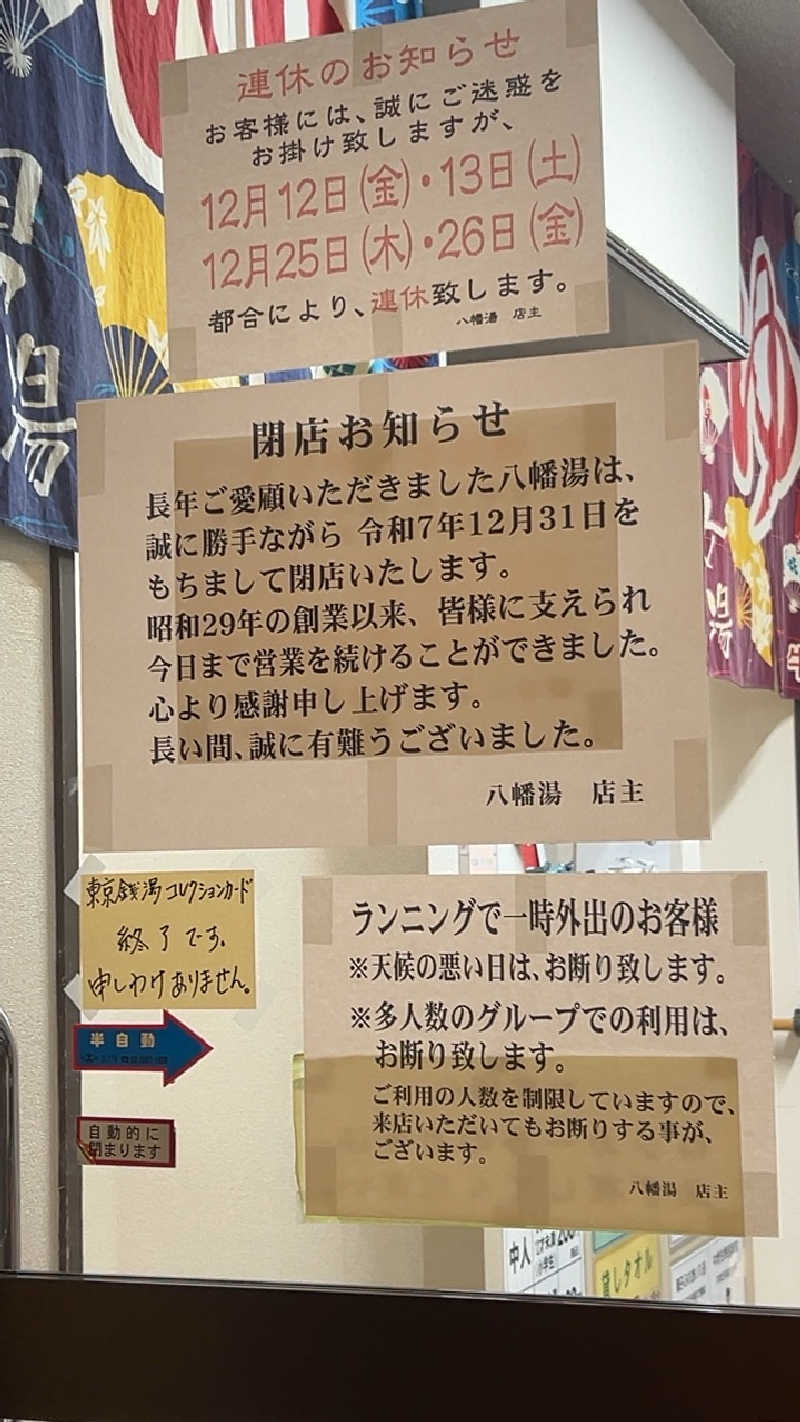 連休のお知らせ
お客様には、誠にご迷惑を
お掛け致しますが、
12月12日(金)・13日(土)
12月25日(木)・26日(金)
都合により、連休致します。
八幡湯 店主
閉店お知らせ
長年ご愛顧いただきました八幡湯は、
誠に勝手ながら 令和7年12月31日を
もちまして閉店いたします。
昭和29年の創業以来、皆様に支えられ
今日まで営業を続けることができました。
心より感謝申し上げます。
長い間、誠に有難うございました。
八幡湯 店主
東京銭湯コレクションカード
終了です。
申しわけありません。
半自動
自動的に
閉まります
ランニングで一時外出のお客様
※天候の悪い日は、お断り致します。
※多人数のグループでの利用は、
お断り致します。
ご利用の人数を制限していますので、
来店いただいてもお断りする事が、
ございます。
八幡湯 店主
中人
小学生
貸しタオル
湯
ゆ
湯